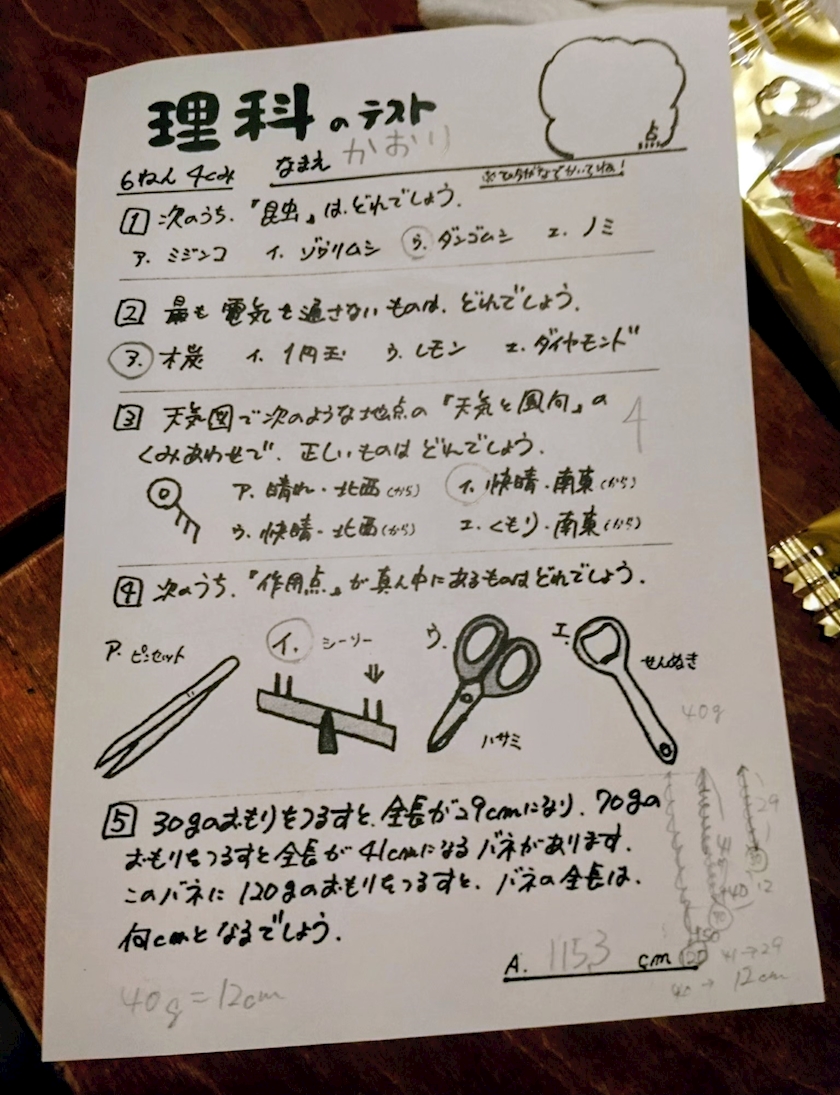 理科のテスト
点
6ねん 4くみ なまえ かおり
※ひらがなでかいてね!
1 次のうち、『昆虫』は、どれでしょう。
ア. ミジンコ イ. ゾウリムシ ウ. ダンゴムシ エ. ノミ
2 最も電気を通さないものは、どれでしょう。
ア. 木炭 イ. 1円玉 ウ. レモン エ. ダイヤモンド
3 天気図で次のような地点の『天気と風向』の
くみあわせで、正しいものはどれでしょう。
4
ア. 晴れ・北西(から) イ. 快晴・南東(から)
ウ. 快晴・北西(から) エ. くもり・南東(から)
4 次のうち、『作用点』が真ん中にあるものはどれでしょう。
ア. ピンセット イ. シーソー ウ. ハサミ エ. せんぬき
40g
5 30gのおもりをつるすと、全長が29cmになり、70gの
おもりをつるすと全長が41cmになるバネがあります。
このバネに120gのおもりをつるすと、バネの全長は、
何cmとなるでしょう。
A. 115.3 cm
40g=12cm
29
12
120
41→29
40→12cm